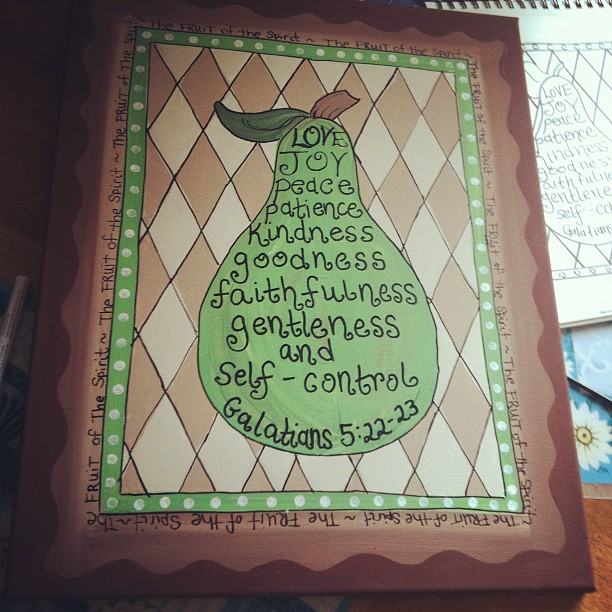 The FRUIT of the Spirit ~ The FRUIT of the Spirit
~ The FRUIT of the Spirit ~ The FRUIT of the Spirit
~ The FRUIT of the Spirit ~ The FRUIT of the Spirit
FRUIT of the Spirit ~ The FRUIT of The Spirit ~ The FRUIT of The Spirit
LOVE
JOY
peace
patience
kindness
goodness
faithfulness
gentleness
and
self-control
Galatians 5:22-23
LOVE
JOY
peace
patience
kindness
goodness
faithfulness
gentleness
self-
Galatians